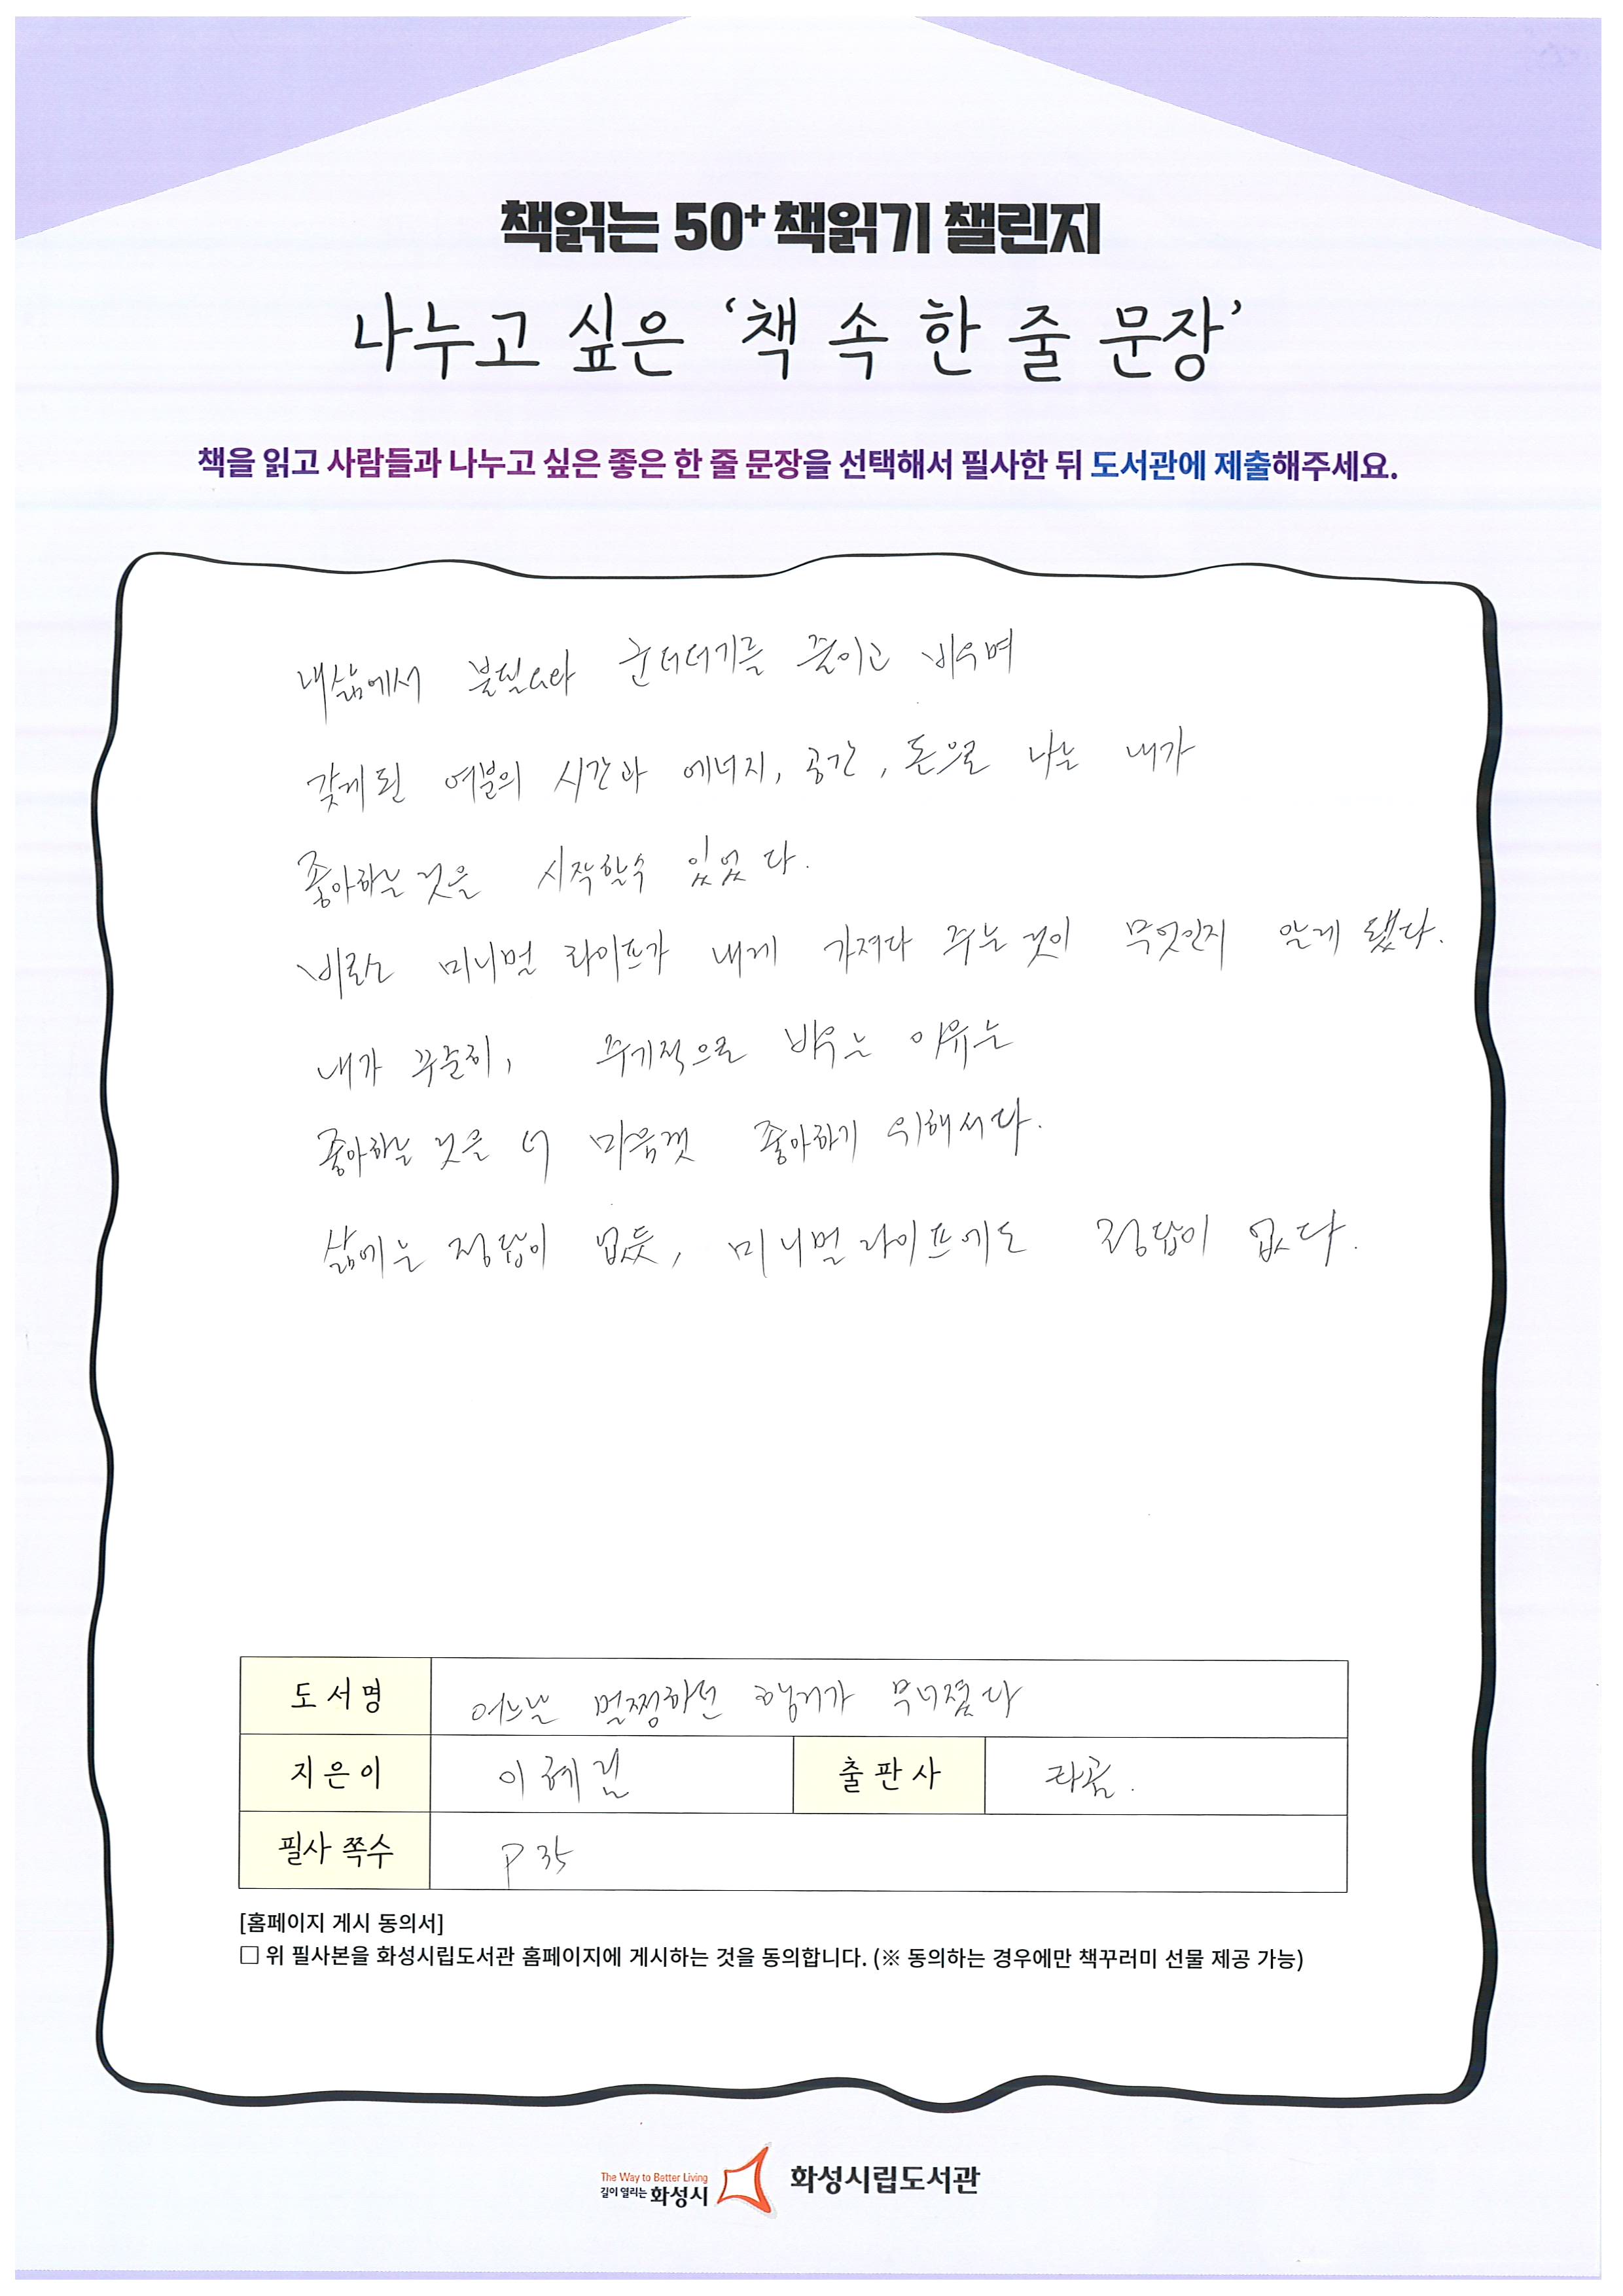 책읽는 50+ 책읽기 챌린지
나누고 싶은 ‘책 속 한 줄 문장’
책을 읽고 사람들과 나누고 싶은 좋은 한 줄 문장을 선택해서 필사한 뒤 도서관에 제출해주세요.
내삶에서 불필요와 군더더기를 줄이고 비우며
갖게 된 여분의 시간과 에너지, 공간, 돈으로 나는 내가
좋아하는 것을 시작할수 있었다.
비로소 미니멀 라이프가 내게 가져다 주는 것이 무엇인지 알게 됐다.
내가 꾸준히, 주기적으로 비우는 이유는
좋아하는 것을 더 마음껏 좋아하기 위해서다.
삶에는 정답이 없듯, 미니멀 라이프에도 정답이 없다.
도서명 어느날 멀쩡하던 행거가 무너졌다
지은이 이혜림 출판사 라곰.
필사 쪽수 P 35
[홈페이지 게시 동의서]
□ 위 필사본을 화성시립도서관 홈페이지에 게시하는 것을 동의합니다. (※ 동의하는 경우에만 책꾸러미 선물 제공 가능)
The Way to Better Living
길이 열리는 화성시 화성시립도서관